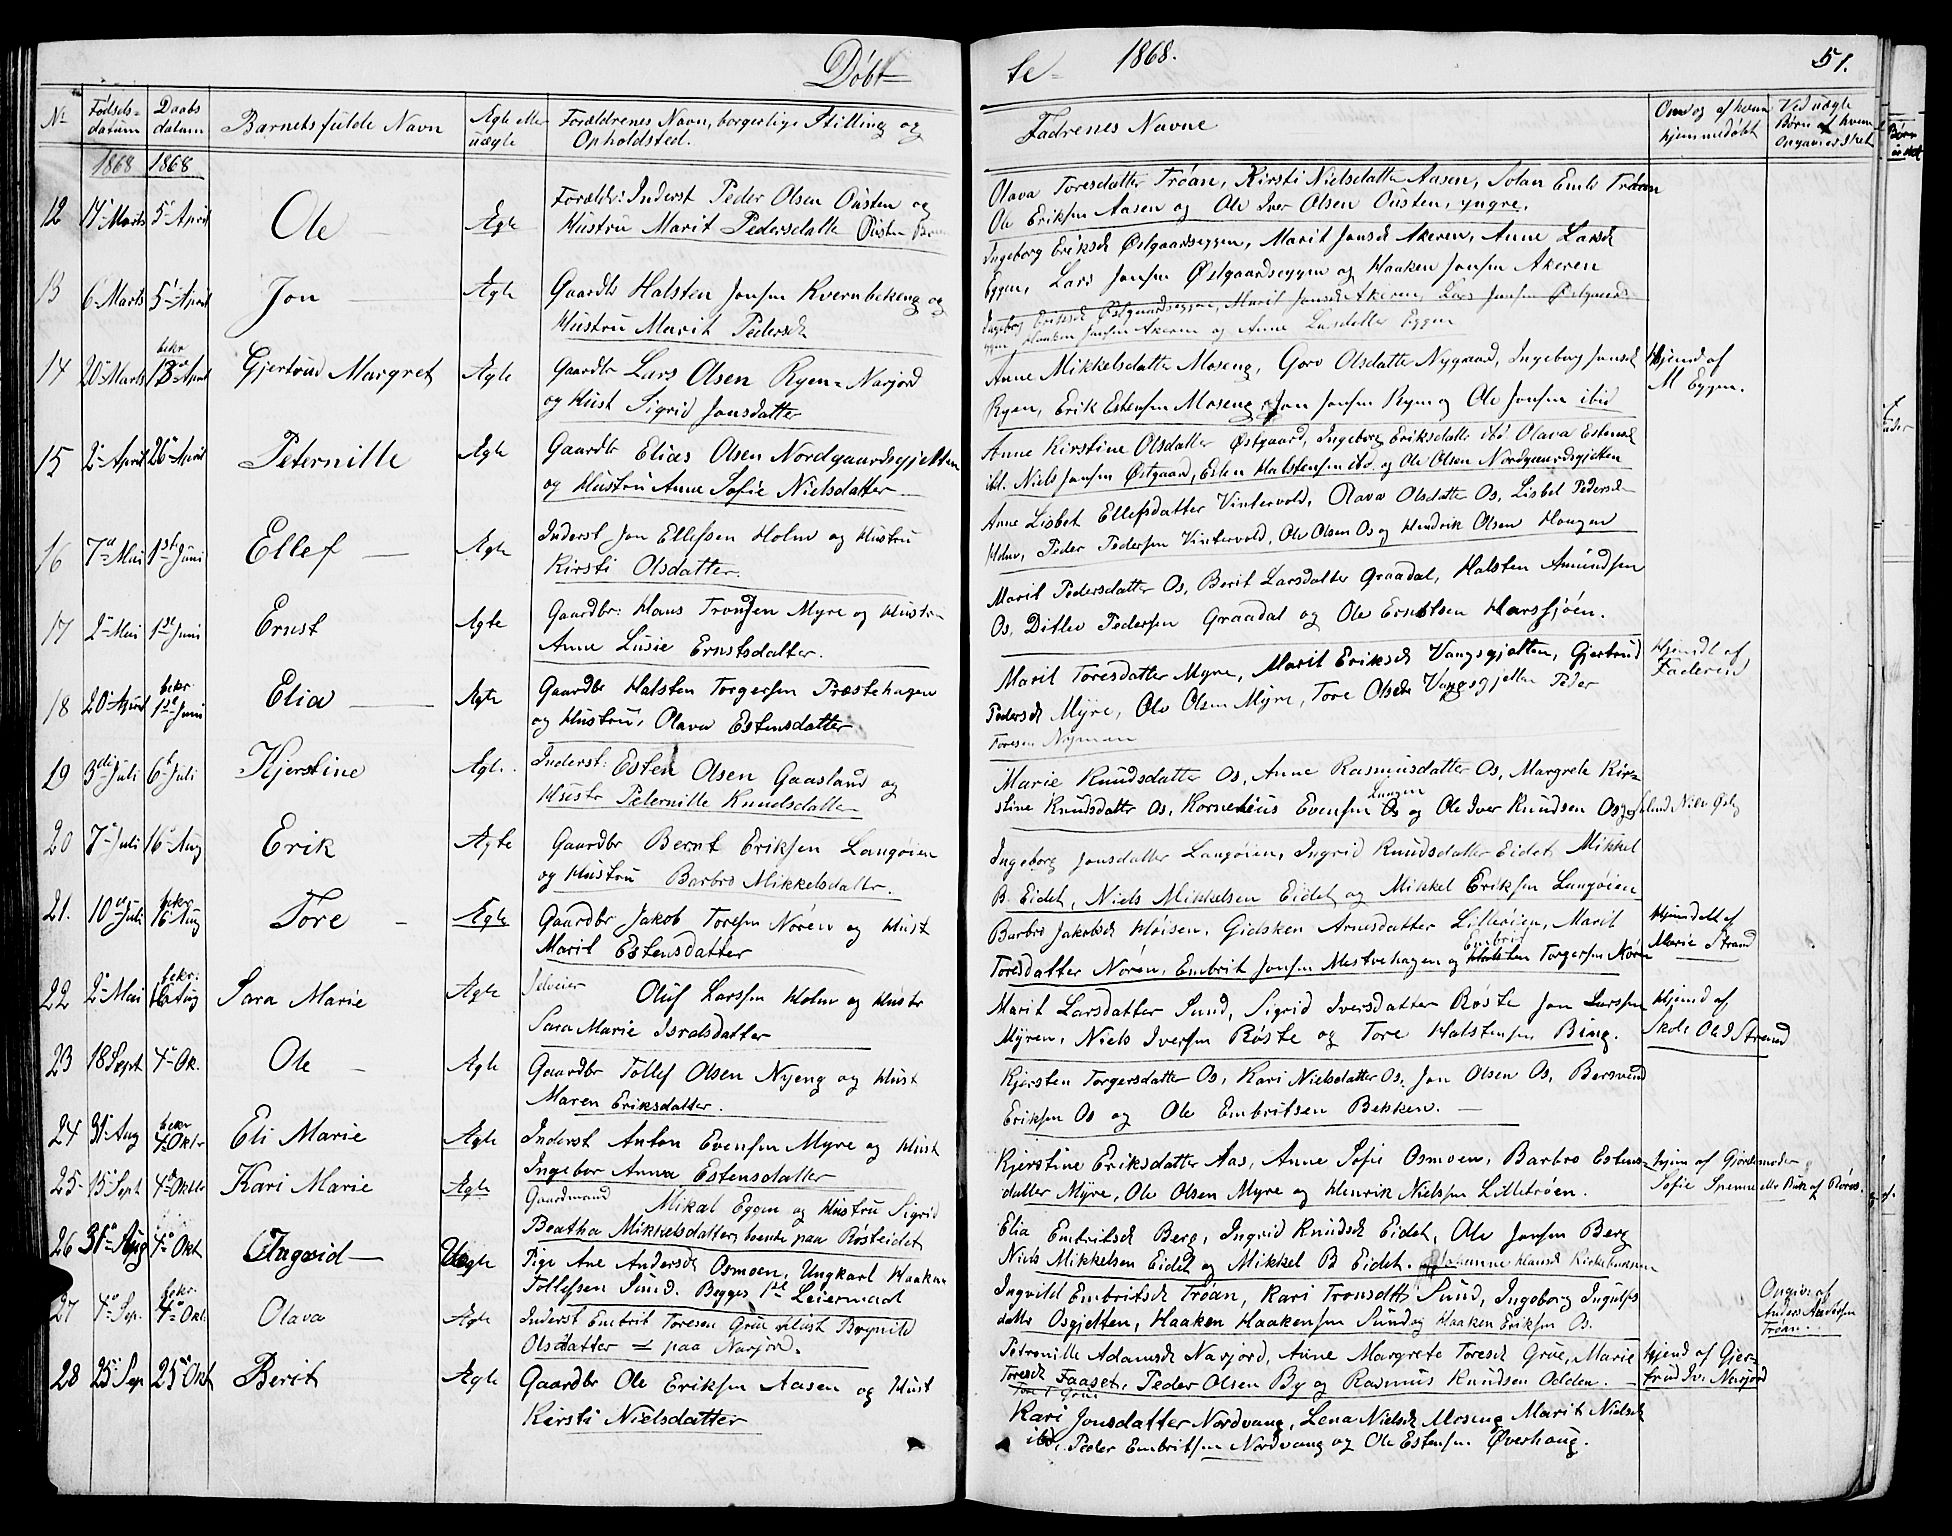 Døbt
No
Fødsels-
datum
Daabs
datum
Barnets fulde Navn
Ægte eller
uægte
Forældrenes Navn, borgerlige Stilling og
Opholdsted.
1868 1868
12 17 Marts 5 April Ole Ægte Forældr: Inderst Peder Olsen Ousten og
Hustru Marit Pedersdatter Ousten
13 6 Marts 5 April Jon Ægte Gaardb Halsten Jonsen Kvernbekeng og
Hustru Marit Pedersd
bekr
14 20 Marts 13 April Gjertrud Margret Ægte Gaardbr Lars Olsen Ryen-Narjord
og Hust Sigrid Jonsdatter
15 2 April 26 April Peternille Ægte Gaardbr Elias Olsen Nordgaardsgjelten
og Hustru Anne Sofie Nielsdatter
16 7 Mai 1st Juni Ellef Ægte Inderst Jon Ellefsen Holm og Hustru
Kirsti Olsdatter.
17 2 Mai 1st Juni Ernst Ægte Gaardbr: Hans Tronsen Myre og Hustru
Anne Lusie Ernstsdatter.
bekr
18 20 April 1st Juni Elia Ægte Gaardbr Halsten Torgersen Præstehagen
og Hustru, Olava Estensdatter
19 3die Juli 6t Juli Kjerstine Ægte. Inderst: Esten Olsen Gaasland og
Hustr Peternille Knudsdatter
20 7 Juli 16 Aug Erik Ægte Gaardbr Bernt Eriksen Langøien
og Hustru Barbro Mikkelsdatter.
bekr
21. 10 Juli 16 Aug Tore Ægte Gaardbr Jakob Toresen Noren og Hust
Marit Estensdatter
bekr:
22 2 Mai 16 Aug Sara Marie Ægte Selveier Oluf Larssen Holm og Hustr
Sara Marie Isralsdatter
23 18 Sept 4 Ok. Ole Ægte Gaardbr Tollef Olsen Nyeng og Hust
Maren Eriksdatter.
bekr
24 31 Aug 4 Oktr Eli Marie Ægte Inderst Anton Evensen Myre og Hust
Ingebor Anna Estensdatter
25 15 Sept 4 Oktbr Kari Marie Ægte Gaardmand Mikal Eggen og Hustru Sigrid
Beatha Mikkelsdatter, boende paa Røsteidet
26 31 Aug 4 Okt Ingvid Uægte Pige Ane Andersd Osmoen, Ungkarl Haaken
Tollefsen Sund. Begges 1ste Leiermaal
bekr.
27 4 Sep. 4 Okt. Olava Ægte Inderst Embrit Toresen Grue Hust Brynild
Olsdatter paa Narjord.
28 25 Sep 25 Okt Berit Ægte Gaardbr Ole Eriksen Aasen og Hust
Kirsti Nielsdatter
te 1868. 51.
Fadrenes Navne
Om og af hvem
hjemmedøbt
Ved uægte
Børn af hvem
Børn
Olava Toresdatter Trøan, Kirsti Nielsdatter Aasen, Trøan
Ole Eriksen Aasen og Ole Iver Olsen Ousten, yngre.
Ingeborg Eriksd Østgaardseggen, Marit Jonsd Akeren, Anne Larsd
Eggen, Lars Jonsen Østgaardseggen og Haaken Jonsen Akeren
Ingeborg Eriksd Østgaardseggen, Marit Jonsd Akeren, Lars Jonsen Østgaards
eggen Haaken Jonsen Akeren og Anne Larsdatter Eggen
Anne Mikkelsdatter Moseng, Goro Olsdatter Nygaard, Ingeborg Jonsd
Ryen, Erik Estensen Moseng, Jon Jonsen Ryen og Ole Jonsen ibid
Hjemd af
M Eggen.
Anne Kirstine Olsdatter Østgaard, Ingeborg Eriksdatter ibd Olava Estensd
ibd. Niels Jonsen Østgaard, Esten Halstensen ibd. og Ole Olsen Nordgaardsgjelten
Anne Lisbet Ellefsdatter Vintervold, Olava Olsdatter Os, Lisbet Pedersd
Holm, Peder Pedersen Vintervold, Ole Olsen Os og Hendrik Olsen Hougen
Marit Pedersdatter Os, Berit Larsdatter Graadal, Halsten Amundsen
Os, Ditlev Pedersen Graadal og Ole Ernstsen Harsjøen.
Marit Toresdatter Myre, Marit Eriksd Vangsgjelten, Gjertrud
Pedersd Myre, Ole Olsen Myre, Tore Olsen Vangsgjelten Peder
Toresen Nymoen
Hjemdt af
Faderen
Marie Knudsdatter Os, Anne Rasmusdatter Os, Margrete Kir-
stine Knudsdatter Os, Kornelius Evensen Os og Ole Iver Knudsen Os
Ingeborg Jonsdatter Langøien, Ingrid Knudsdatter Eidet Mikkel
B. Eidet, Niels Mikkelsen Eidet og Mikkel Eriksen Langøien
Barbro Jakobsd Høisen, Gidsken Arnesdatter Lilleøien, Marit
Embrit
Toresdatter Noren, Embrit Jonsen Mestvehagen og Halsten Torgersen Noren
Hjemdøbt af
Marie Strand
Marit Larsdatter Sund, Sigrid Iversdatter Røste Jon Larssen
Myren, Niels Iversen Røste og Tore Halstensen Bing.
Hjemd af
Skol. Ole I Strand
Kjersten Torgersdatter Os, Kari Nielsdatter Os, Jon Olsen Os, Bersvend
Eriksen Os og Ole Embritsen Bekken.
Kjerstine Eriksdatter Aas, Anne Sofie Osmoen, Barbro Estens-
datter Myre, Ole Olsen Myre og Henrik Nielsen Lilletrøen.
hjem af Gjordemoder
Sofie af Røros.
Elia Embritsd Berg, Ingrid Knudsd Eidet, Ole Jonsen Berg
Niels Mikkelsen Eidet og Mikkel B Eidet.
Ingvild Embritsd Trøan, Kari Tronsdtt Sund, Ingeborg Ingulfs
datter Osgjelten, Haaken Haakensen Sund og Haaken Eriksen Os.
Ongiv. af
Anders Andersen
Trøan.
Petronille Adamsd Narjord, Anne Margrete Toresd Grue, Marie
Toresd Faaset, Peder Olsen By og Rasmus Knudsen Odden.
hjemd af Gjer-
trud Iv. Narjord
Kari Jonsdatter Nordvang, Lena Nielsd Moseng Marit Nielsd
ibd, Peder Embritsen Nordvang og Ole Estensen Øverhoug.